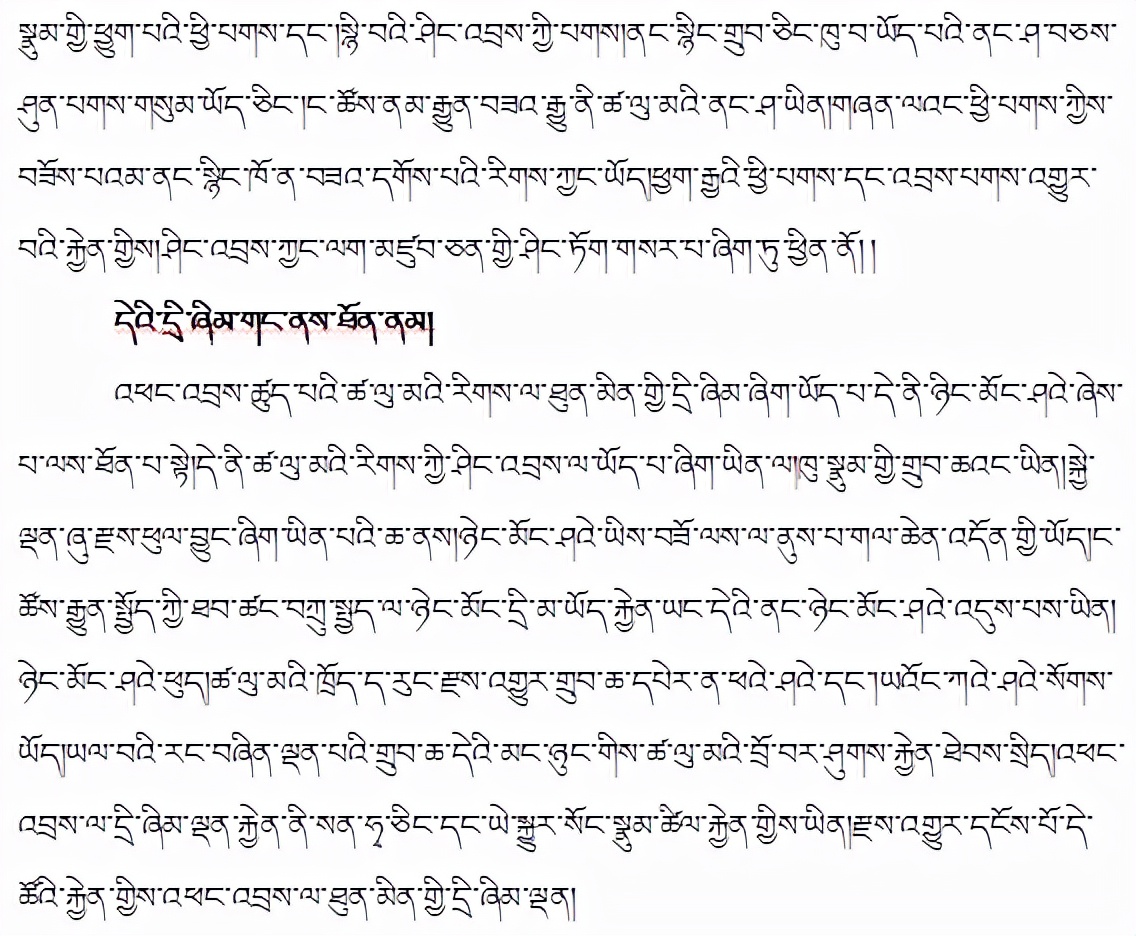 སྣུམ་གྱི་ཕྱུག་པའི་ཕྱི་པགས་དང་།སྙི་བའི་ཤིང་འབྲས་ཀྱི་པགས།ནང་སྙིང་གྲུབ་ཅིང་ཁུ་བ་ཡོད་པའི་ནང་ཤ་བཅས་
ཤུན་པགས་གསུམ་ཡོད་ཅིང་།ང་ཚོས་ནམ་རྒྱུན་བཟའ་རྒྱུ་ནི་ཚ་ལུ་མའི་ནང་ཤ་ཡིན།གཞན་ལའང་ཕྱི་པགས་ཀྱིས་
བཟོས་པའམ་ནང་སྙིང་ཁོ་ན་བཟའ་དགོས་པའི་རིགས་ཀྱང་ཡོད།ཕྱུག་རྒྱའི་ཕྱི་པགས་དང་འབྲས་པགས་འགྱུར་
བའི་རྐྱེན་གྱིས།ཤིང་འབྲས་ཀྱང་ལག་མཛུབ་ཅན་གྱི་ཤིང་ཏོག་གསར་པ་ཞིག་ཏུ་ཕྱིན་ནོ།།
དེའི་དྲི་ཞིམ་གང་ནས་ཐོན་ནམ།
འཕང་འབྲས་ཚུད་པའི་ཚ་ལུ་མའི་རིགས་ལ་ཐུན་མིན་གྱི་དྲི་ཞིམ་ཞིག་ཡོད་པ་དེ་ནི་ཉིང་མོང་ཤའེ་ཞེས་
པ་ལས་ཐོན་པ་སྟེ།དེ་ནི་ཚ་ལུ་མའི་རིགས་ཀྱི་ཤིང་འབྲས་ལ་ཡོད་པ་ཞིག་ཡིན་ལ།ཁུ་སྣུམ་གྱི་གྲུབ་ཆའང་ཡིན།སྐྱེ་
ལྡན་ཞུ་རྫས་ཕུལ་བྱུང་ཞིག་ཡིན་པའི་ཆ་ནས།ཉེང་མོང་ཤའེ་ཡིས་བཟོ་ལས་ལ་ནུས་པ་གལ་ཆེན་འདོན་གྱི་ཡོད།ང་
ཚོས་རྒྱུན་སྤྱོད་ཀྱི་ཐབ་ཚང་བཀྲུ་སྤྱད་ལ་ཉེང་མོང་དྲི་མ་ཡོད་རྐྱེན་ཡང་དེའི་ནང་ཉེང་མོང་ཤའེ་འདུས་པས་ཡིན།
ཉེང་མོང་ཤའེ་ཕུད།ཚ་ལུ་མའི་ཁྲོད་ད་རུང་རྫས་འགྱུར་གྲུབ་ཆ་དཔེར་ན་ཕའེ་ཤའེ་དང་།ཡའོང་ཀའེ་ཤའེ་སོགས་
ཡོད།ཡལ་བའི་རང་བཞིན་ལྡན་པའི་གྲུབ་ཆ་དེའི་མང་ཉུང་གིས་ཚ་ལུ་མའི་བྲོ་བར་ཤུགས་རྐྱེན་ཐེབས་སྲིད།འཕང་
འབྲས་ལ་དྲི་ཞིམ་ལྡན་རྐྱེན་ནི་སན་ཧྭ་ཅིང་དང་ཡེ་སྐྱུར་སོང་སྣུམ་ཚིལ་རྐྱེན་གྱིས་ཡིན།རྫས་འགྱུར་དངོས་པོ་དེ་
ཚོའི་རྐྱེན་གྱིས་འཕང་འབྲས་ལ་ཐུན་མིན་གྱི་དྲི་ཞིམ་ལྡན།